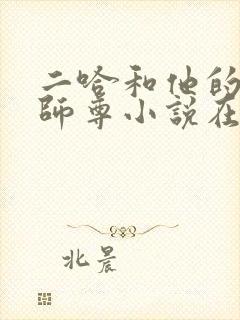 二哈和他的
師尊小說在
北晨